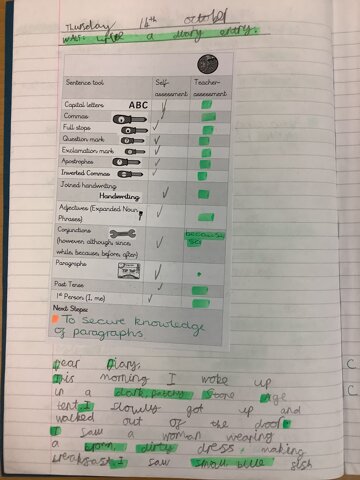 Thursday 14th October
WALT: write a diary entry.
Sentence tool Self-assessment Teacher-assessment
Capital letters ABC
Commas
Full stops
Question mark
Exclamation mark
Apostrophes
Inverted Commas
Joined handwriting
Handwriting
Adjectives (Expanded Noun Phrases)
Conjunctions
(however, although, since
while, because, before, after)
because
so
Paragraphs
Past Tense
1st Person (I, me)
Next Steps:
To secure knowledge
of paragraphs
Dear Diary,
This morning I woke up
in a dark, Stone age
tent. I slowly got up and
walked out of the door.
I saw a woman wearing
a dirty dress, making
breakfast. I saw small, blue fish
C
C